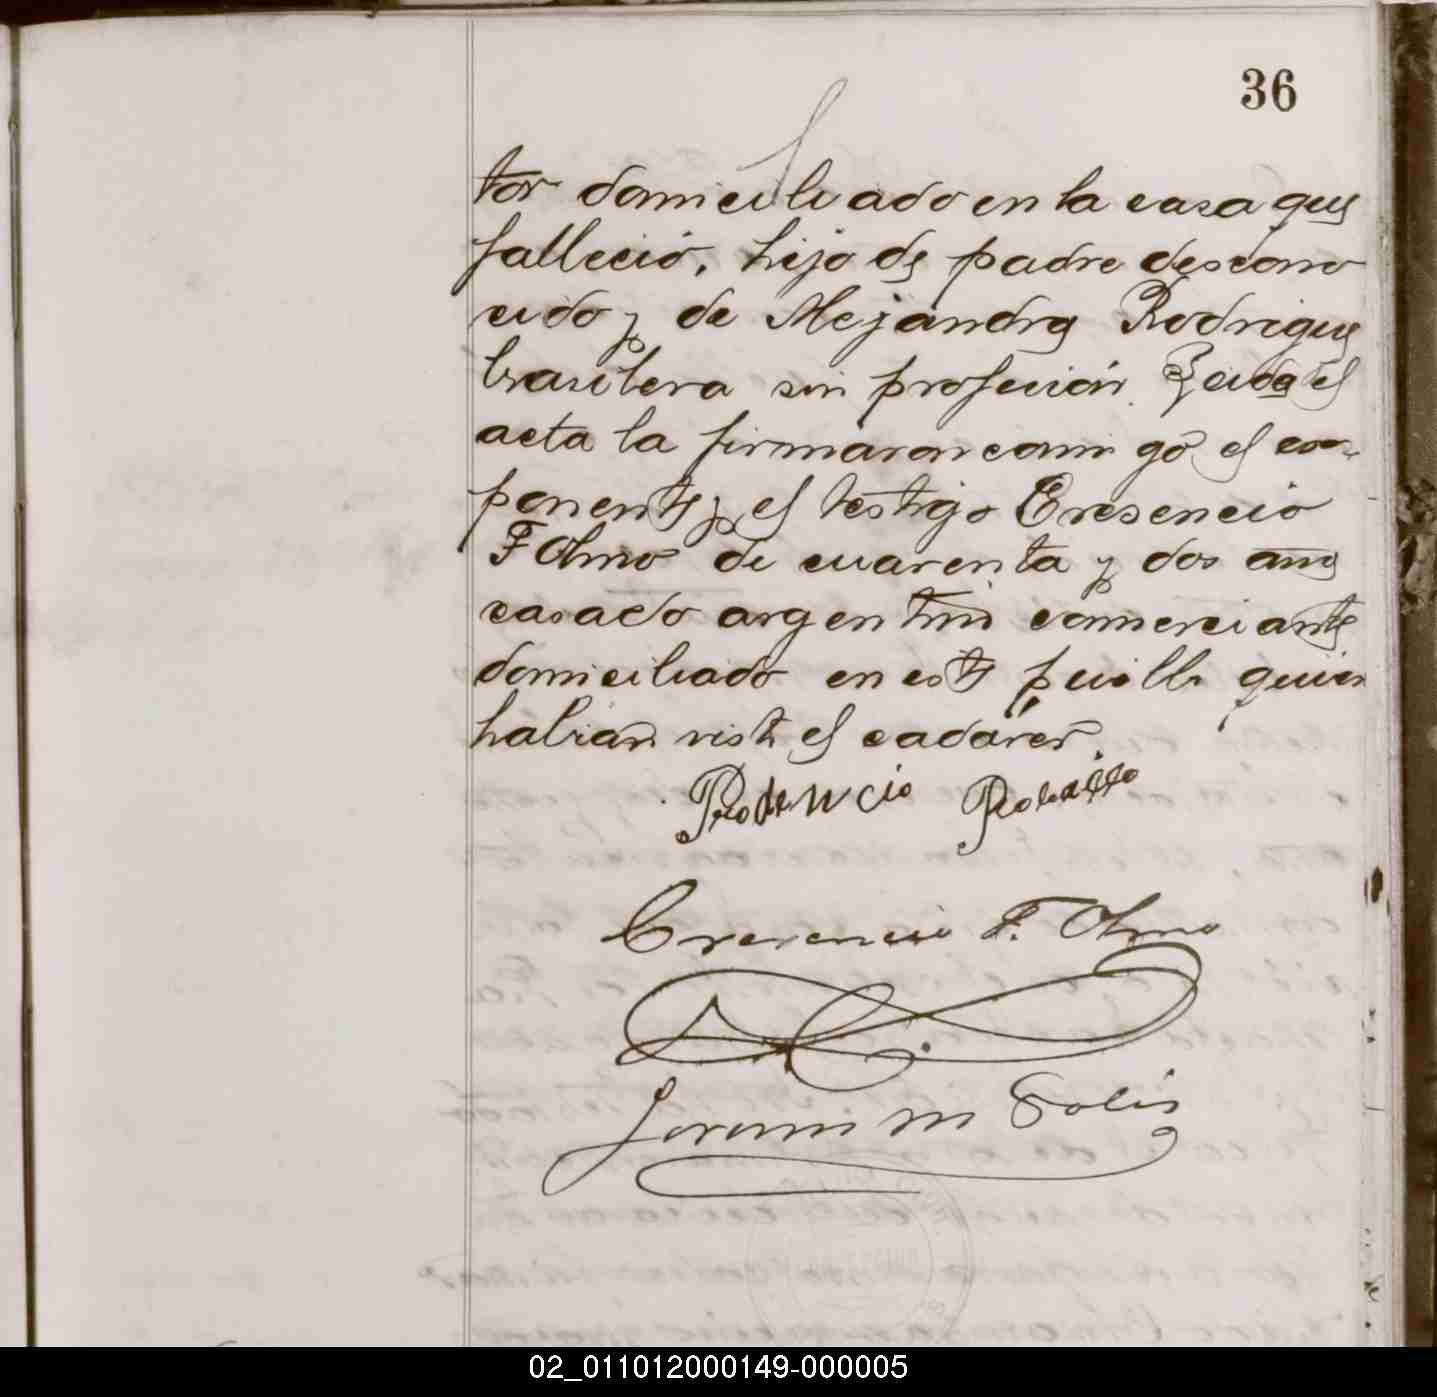 36
tor domiciliado en la casa que
fallecio, hijo de padre descono
cido y de Alejandra Rodriguez
brasilera sin profeción. Leida el
acta la firmaron conmigo el ex-
ponente y el testigo Cresencio
F Olmo de cuarenta y dos años
casado argentino comerciante
domiciliado en este pueblo quien
habian visto el cadáver.
Prodencio
Crecencio F. Olmo
Solis
02_011012000149-000005